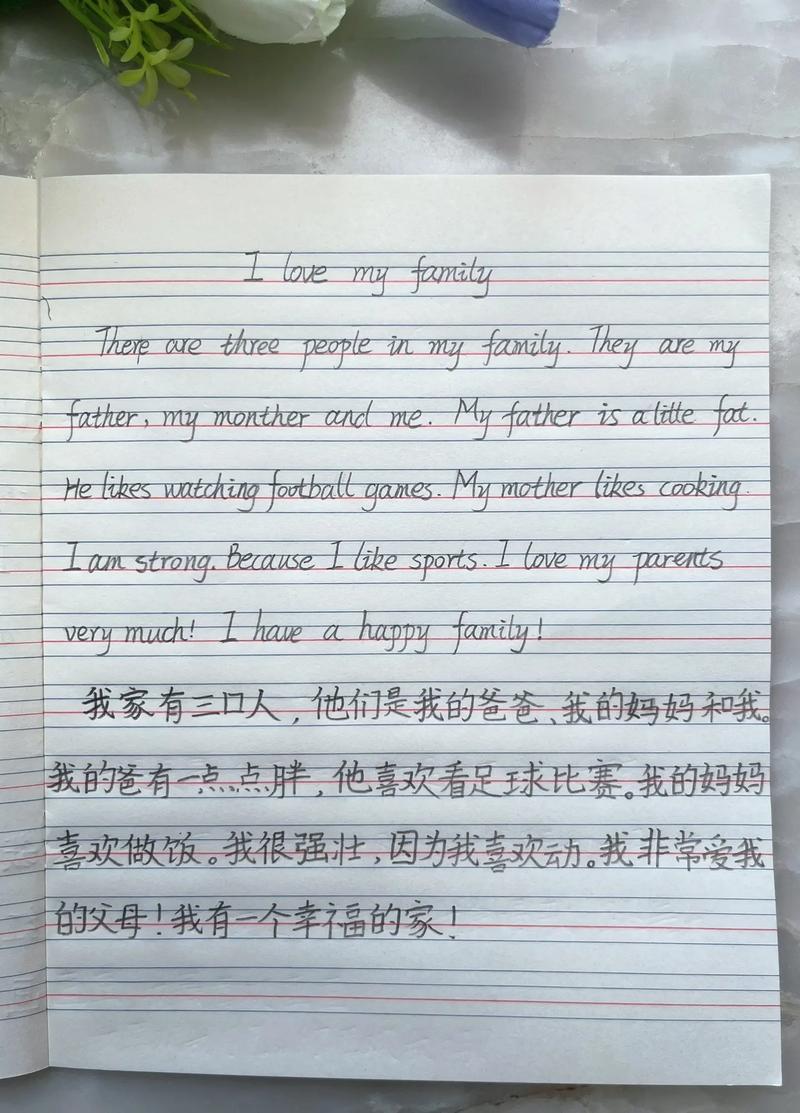 I love my family
There are three people in my family. They are my
father, my monther and me. My father is a litte fat.
He likes watching football games. My mother likes cooking.
I am strong. Because I like sports. I love my parents
very much! I have a happy family!
我家有三口人，他们是我的爸爸、我的妈妈和我。
我的爸有一点点胖，他喜欢看足球比赛。我的妈妈
喜欢做饭。我很强壮，因为我喜欢动。我非常爱我
的父母！我有一个幸福的家！